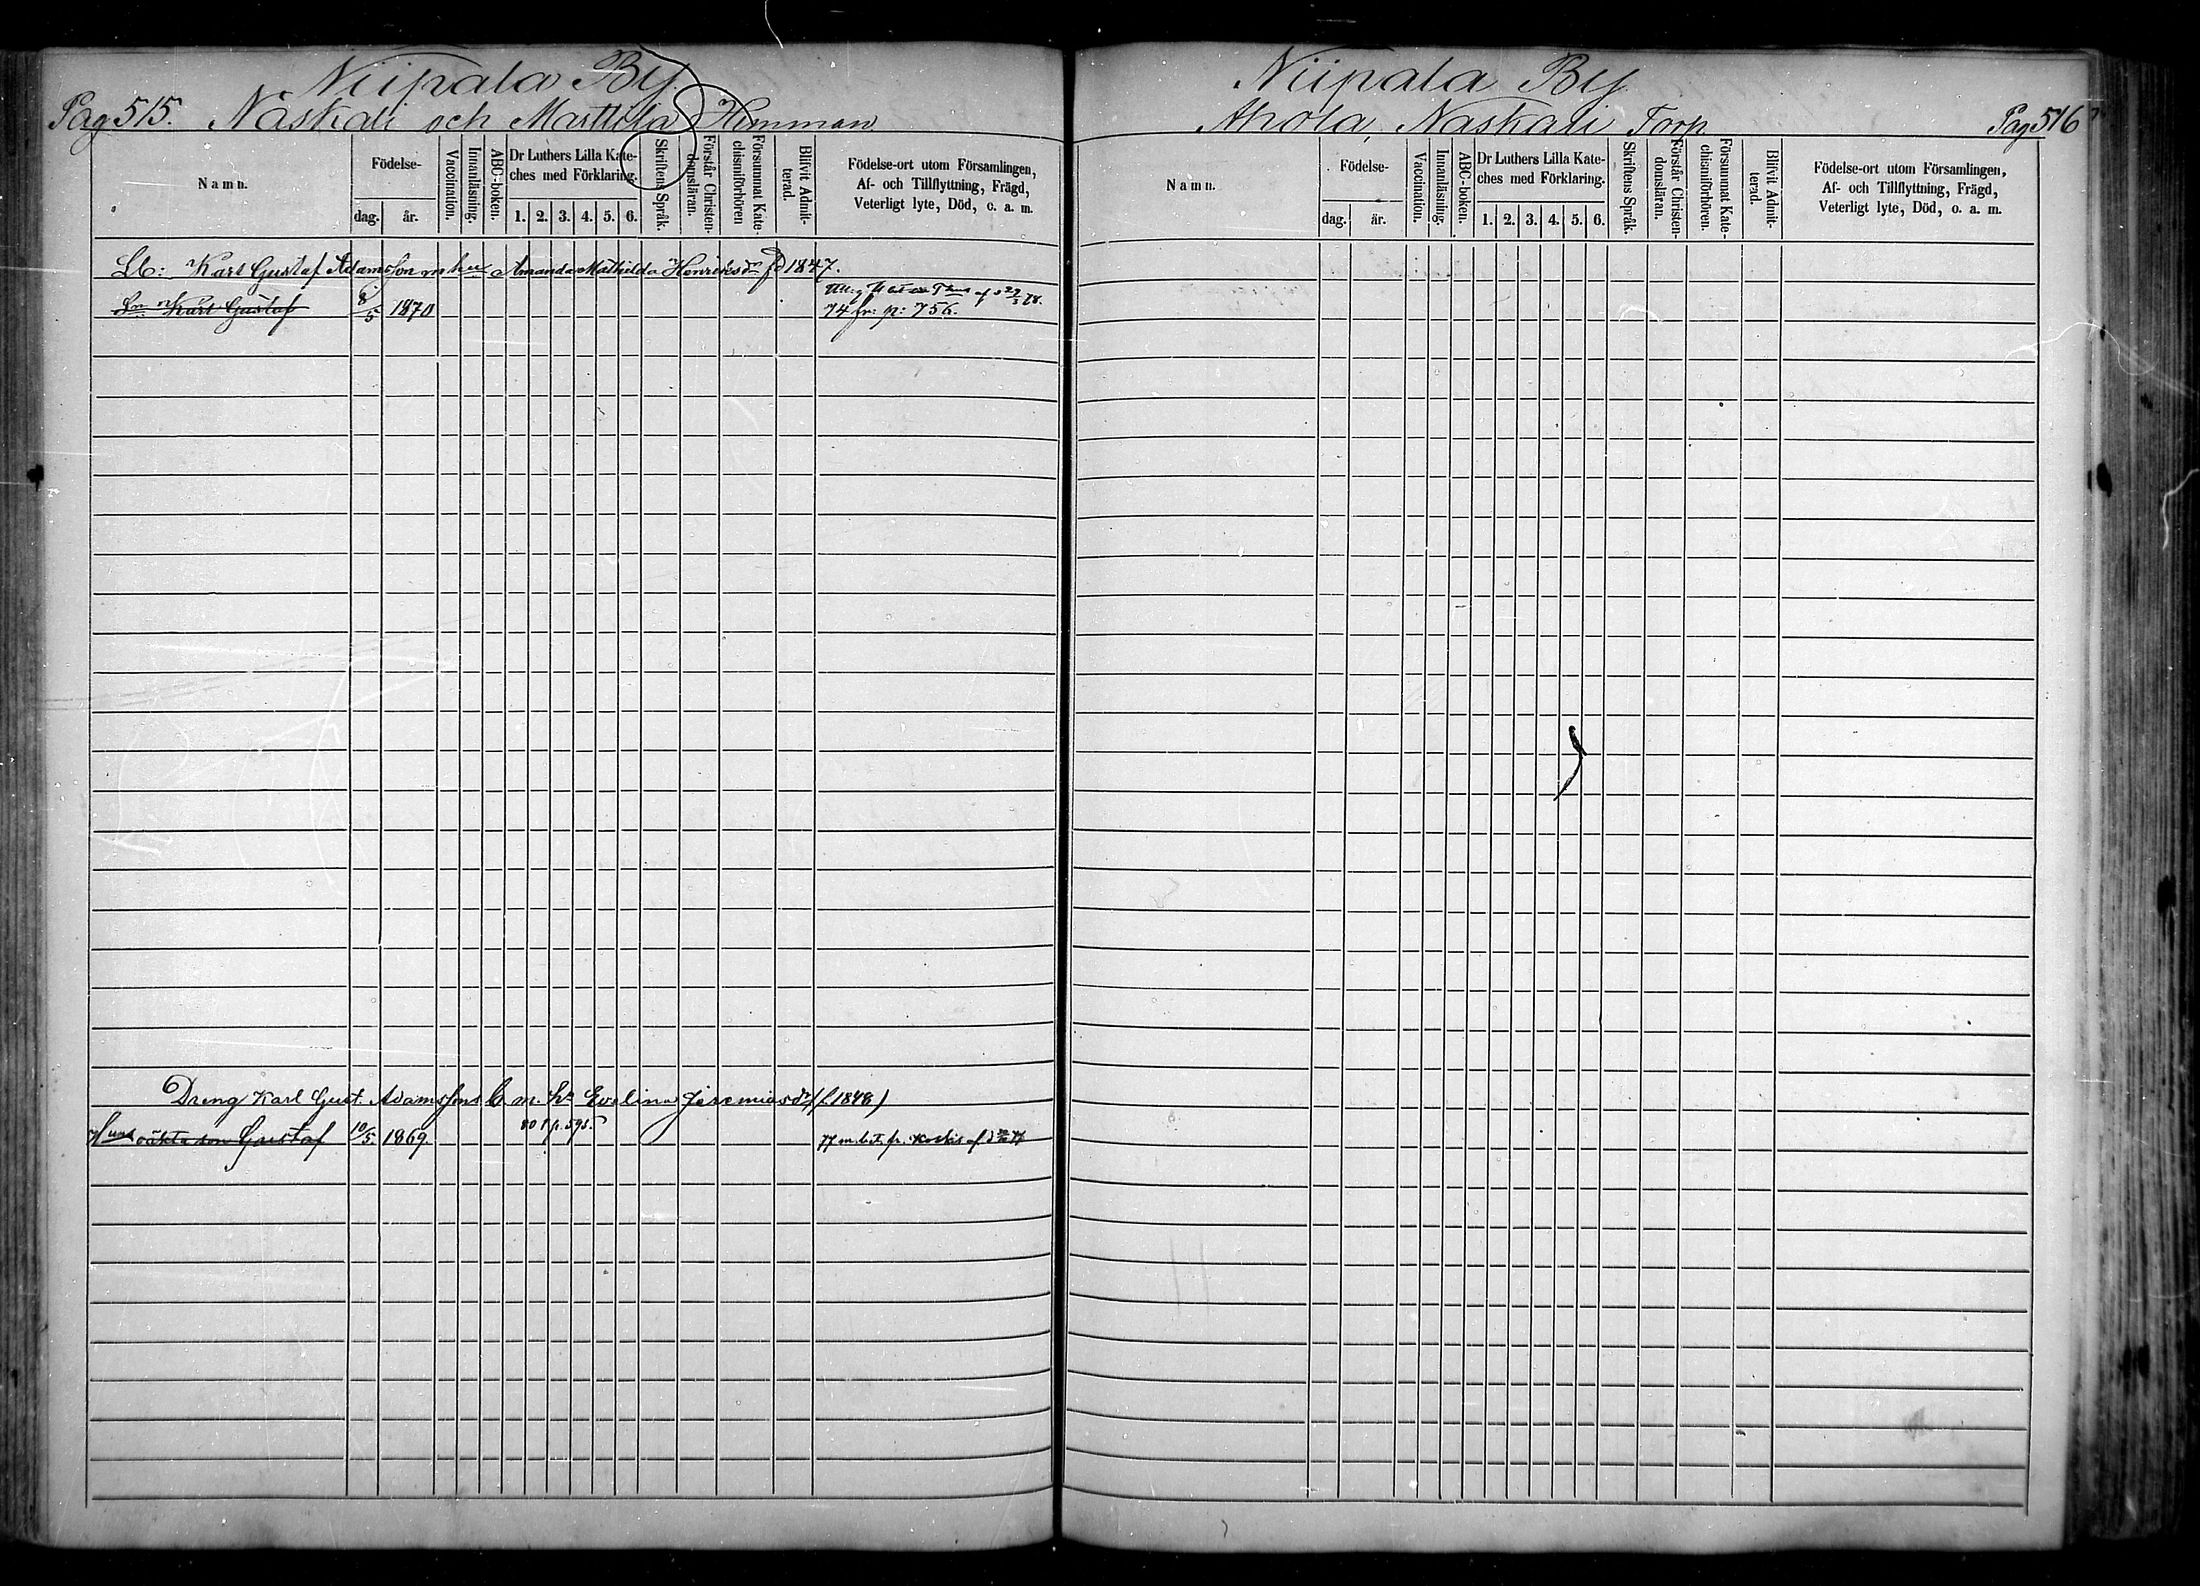 Niipala By.
Pag 515. Naskali och Marttila Hemman
Namn.
Födelse-
dag. år.
Vaccination.
Innanläsning.
ABC-boken.
Dr Luthers Lilla Kate-
ches med Förklaring.
1. 2. 3. 4. 5. 6.
Skriftens Språk.
Förstår Christen-
domsläran.
Försummat Kate-
chismiförhören
Blifvit Admit-
terad.
Födelse-ort utom Församlingen,
Af- och Tillflyttning, Frägd,
Veterligt lyte, Död, o. a. m.
Karl Gustaf Adamsson m hu Amanda Mathilda Henriksdr fd 1847.
Sn Karl Gustaf 8/5 1870
74 fr: p: 756.
Dreng Karl Gust. Adamssons m. hu Evelina Jeremiasdr (f. 1848)
80 t p. 595.
Huns oäkta son Gustaf 10/5 1869.
77 m. b. t. fr. Koskis af d
Niipala By
Ahola, Naskali Torp Pag 516
Namn.
Födelse-
dag. år.
Vaccination.
Innanläsning.
ABC-boken.
Dr Luthers Lilla Kate-
ches med Förklaring.
1. 2. 3. 4. 5. 6.
Skriftens Språk.
Förstår Christen-
domsläran.
Försummat Kate-
chismiförhören.
Blifvit Admit-
terad.
Födelse-ort utom Församlingen,
Af- och Tillflyttning, Frägd,
Veterligt lyte, Död, o. a. m.